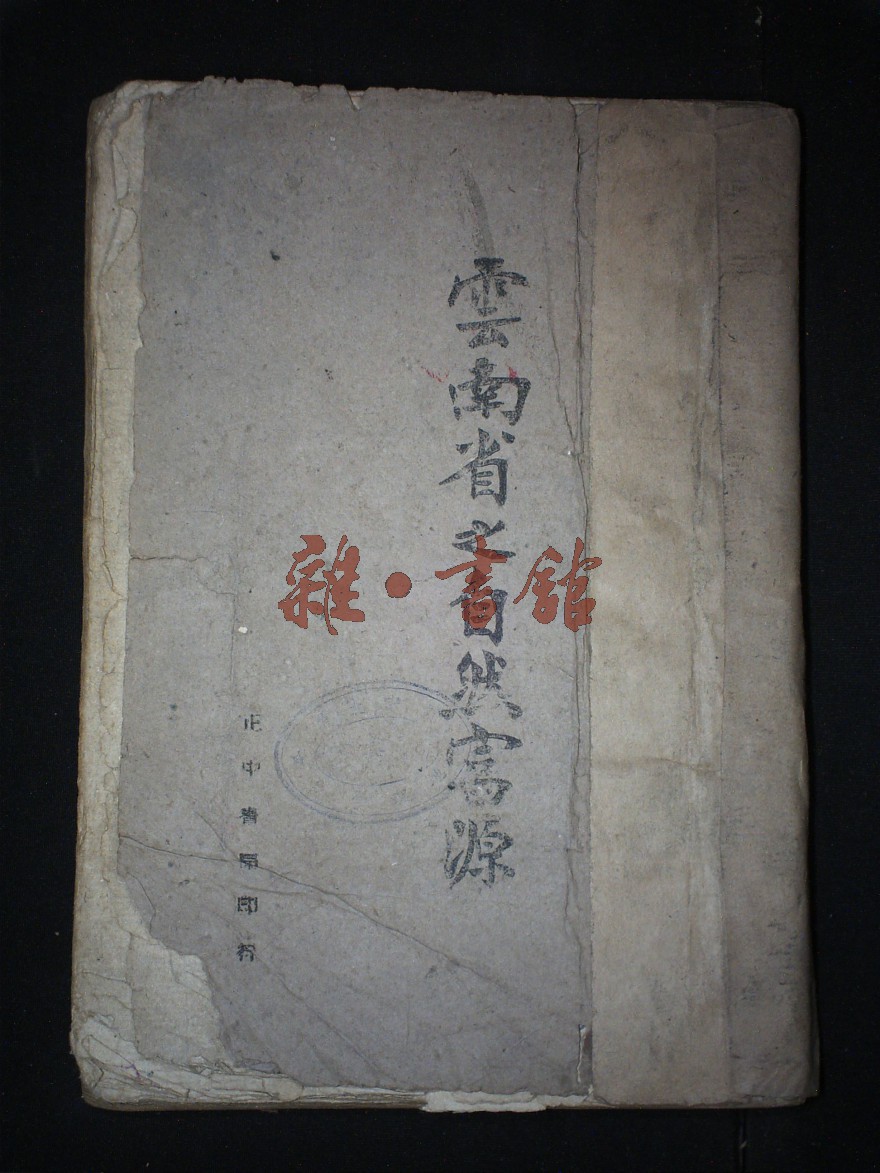 雲南省之自然富源
雜·書館
正中書局印行